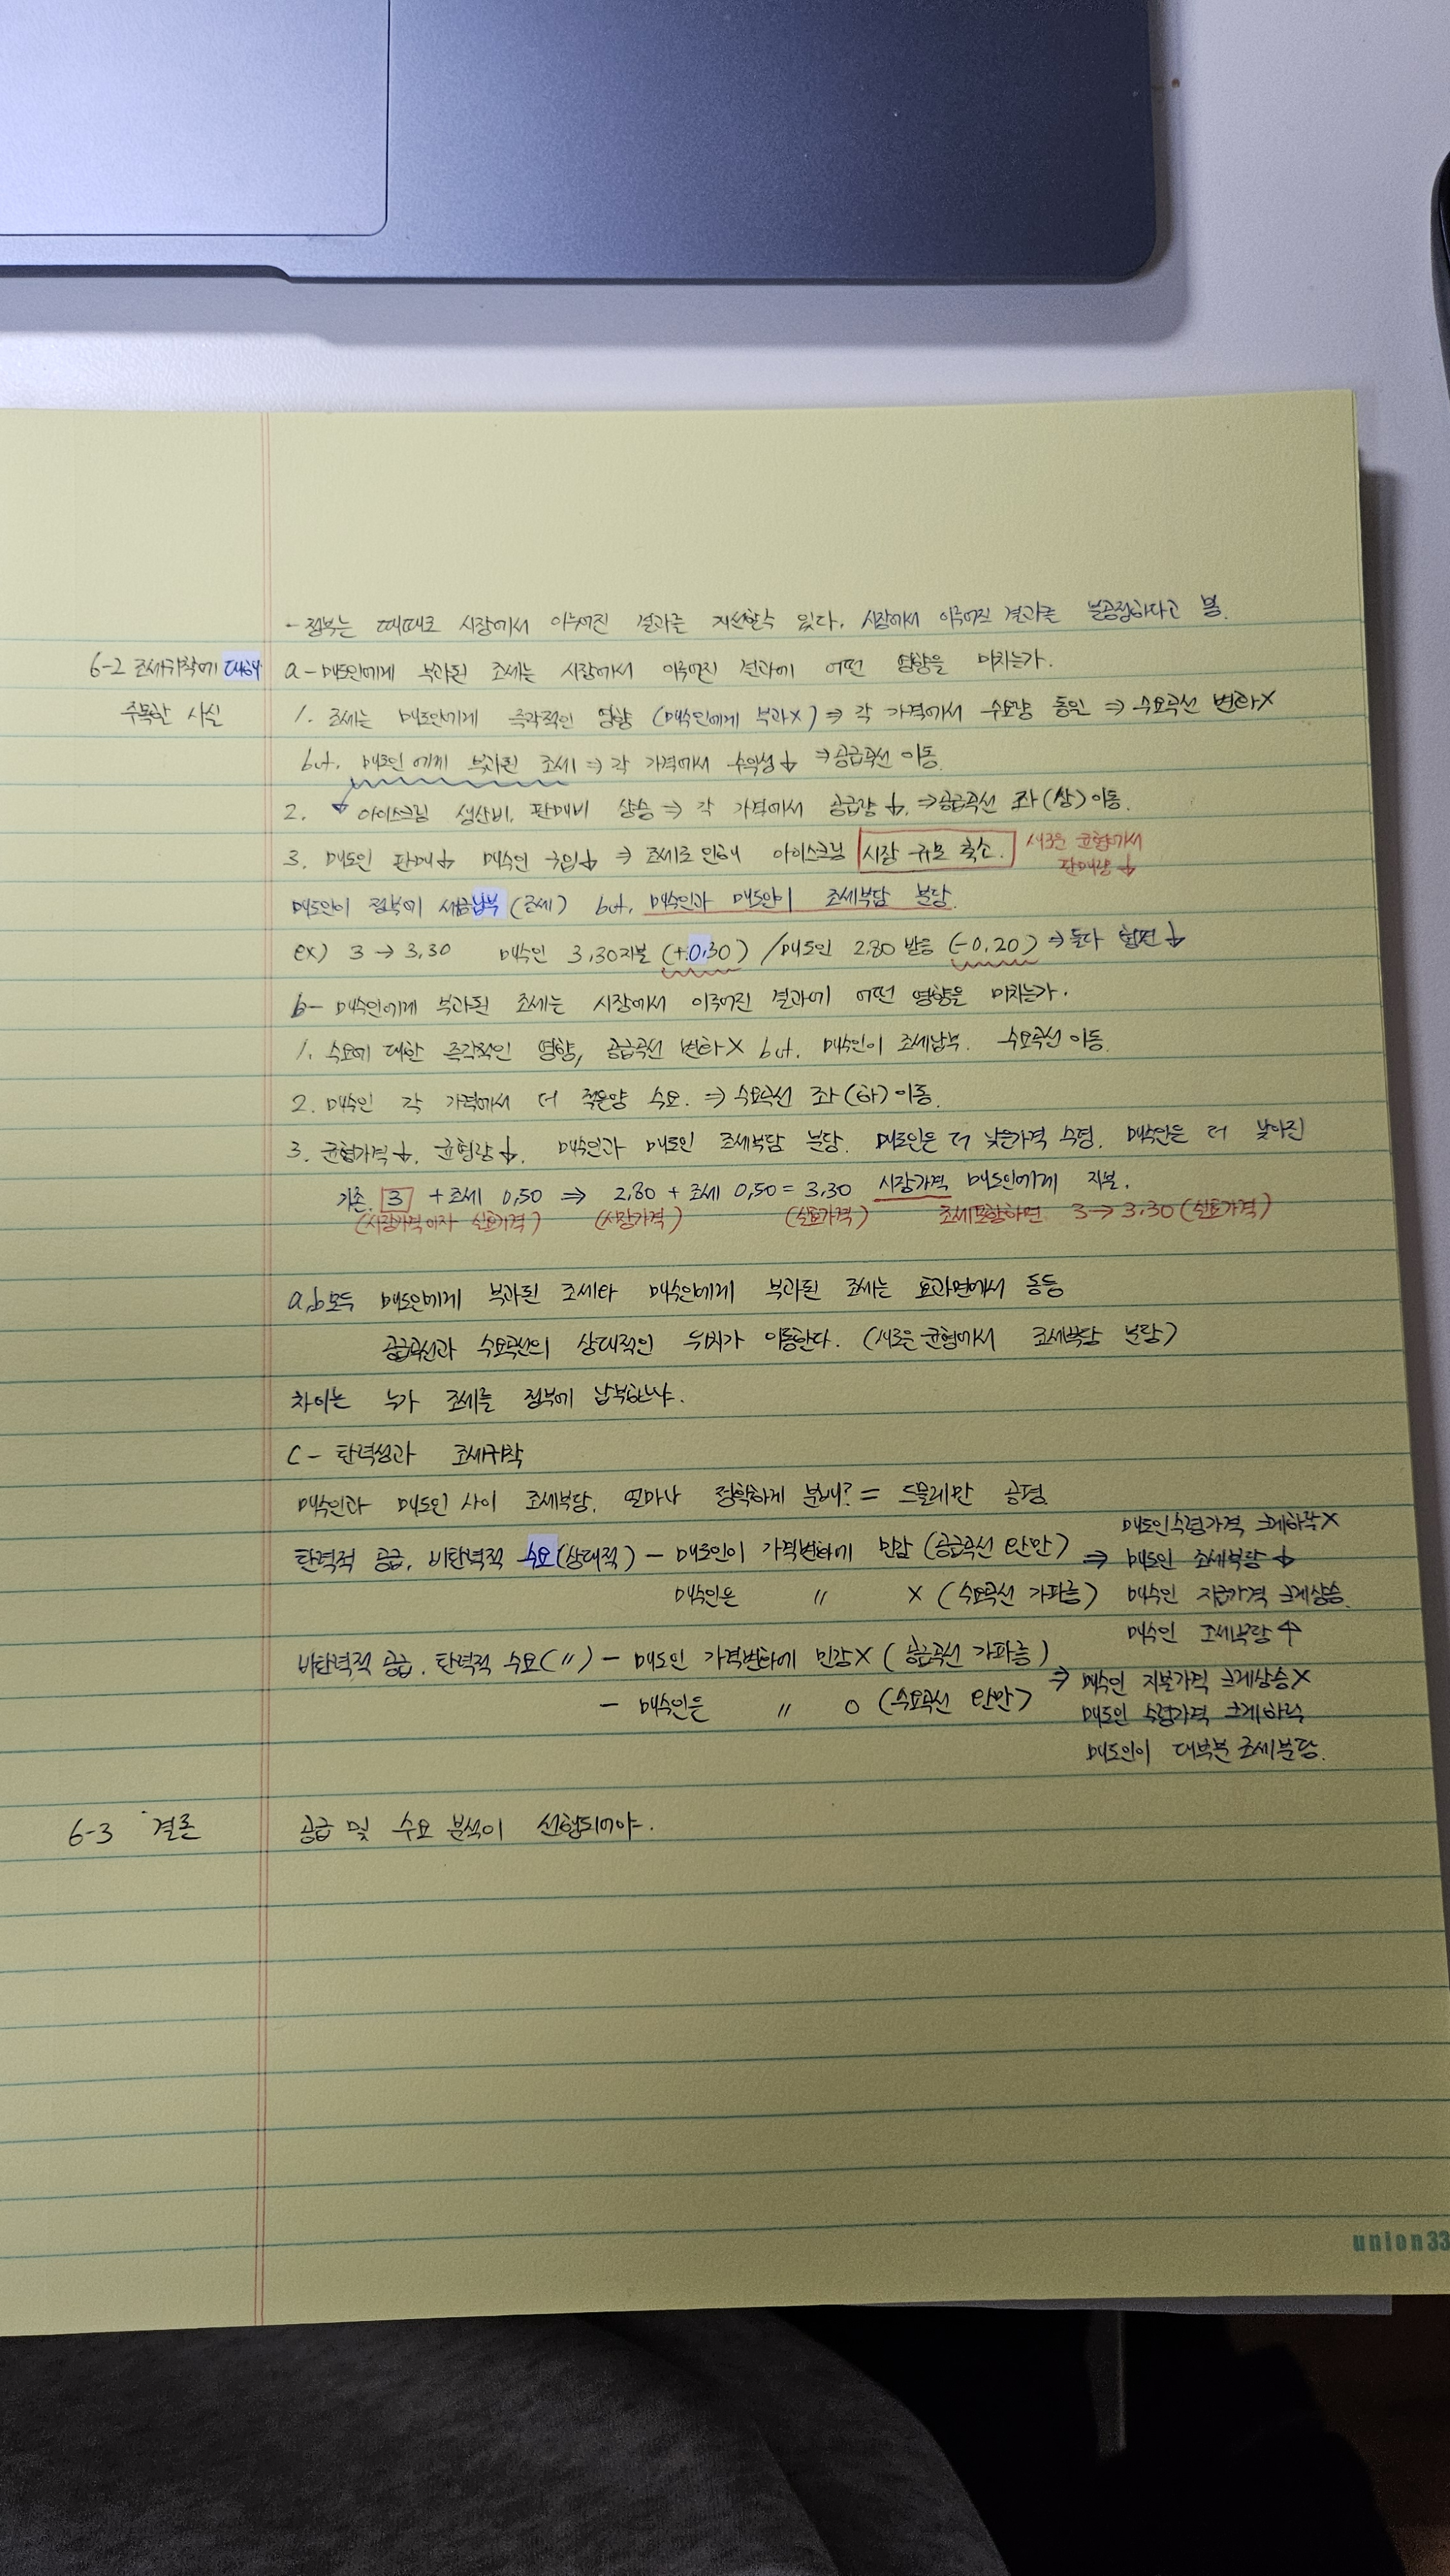 - 정부는 때때로 시장에서 이루어진 결과를 개선할수 있다. 시장에서 이루어진 결과를 불공정하다고 봄.
6-2 조세귀착에 대해
주목한 사실
a - 매도인에게 부과된 조세는 시장에서 이루어진 결과에 어떤 영향을 미치는가.
1. 조세는 매도인에게 즉각적인 영향 (매수인에게 부과X) ⇒ 각 가격에서 수요량 동일 ⇒ 수요곡선 변화X
but. 매도인에게 부과된 조세 ⇒ 각 가격에서 수익성↓ ⇒공급곡선 이동.
2. 아이스크림 생산비, 판매비 상승 ⇒ 각 가격에서 공급량↓. ⇒공급곡선 좌(상)이동.
3. 매도인 판매↓ 매수인 구입↓ ⇒ 조세로 인해 아이스크림 시장 규모 축소. 새로운 균형에서
판매량↓
매도인이 정부에 세금납부 (조세) but. 매수인과 매도인이 조세부담 분담.
ex) 3 → 3.30 매수인 3.30지불 (+0.30) / 매도인 2.80 받음 (-0.20) ⇒ 둘다 형편↓
b - 매수인에게 부과된 조세는 시장에서 이루어진 결과에 어떤 영향을 미치는가.
1. 수요에 대한 즉각적인 영향, 공급곡선 변화X but. 매수인이 조세납부. 수요곡선 이동.
2. 매수인 각 가격에서 더 적은양 수요. ⇒ 수요곡선 좌(하)이동.
3. 균형가격↓. 균형량↓. 매수인과 매도인 조세부담 분담. 매도인은 더 낮은가격 수령. 매수인은 더 낮아진
기존 3 + 조세 0.50 ⇒ 2.80 + 조세 0.50 = 3.30 시장가격 매도인에게 지불.
(시장가격이자 실효가격) (시장가격) (실효가격) 조세포함하면 3→3.30 (실효가격)
a,b모두 매도인에게 부과된 조세와 매수인에게 부과된 조세는 효과면에서 동등
공급곡선과 수요곡선의 상대적인 위치가 이동한다. (새로운 균형에서 조세부담 분담)
차이는 누가 조세를 정부에 납부하느냐.
C - 탄력성과 조세귀착
매수인과 매도인 사이 조세부담. 얼마나 정확하게 분배? = 드물게만 공평.
매도인수령가격 크게하락X
탄력적 공급. 비탄력적 수요(상대적) - 매도인이 가격변화에 민감 (공급곡선 완만) ⇒ 매도인 조세부담↓
매수인은 〃 X (수요곡선 가파름) 매수인 지급가격 크게상승.
매수인 조세부담↑
비탄력적 공급. 탄력적 수요(〃) - 매도인 가격변화에 민감X (공급곡선 가파름)
⇒ 매수인 지불가격 크게상승X
- 매수인은 〃 O (수요곡선 완만) 매도인 수령가격 크게하락
매도인이 대부분 조세부담.
6-3 결론 공급 및 수요 분석이 선행되어야.
union33